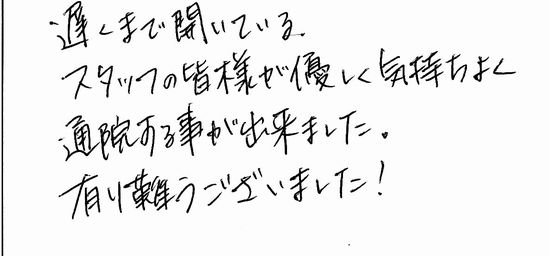 遅くまで開いている。
スタッフの皆様が優しく気持ちよく
通院する事が出来ました。
有り難うございました！